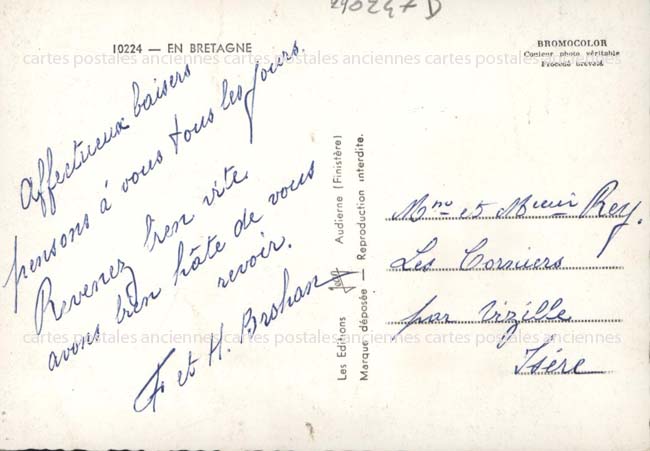 29024+D
10224 — EN BRETAGNE
BROMOCOLOR
Couleur photo véritable
Procédé breveté
cartes postales anciennes cartes postales anciennes cartes postales anciennes
Affectueux baisers
pensons à vous tous les jours.
Revenez bien vite.
avons bien hâte de vous
revoir.
et H. Brohan
Les Editions Jos Audierne (Finistère)
Marque déposée — Reproduction interdite.
Mme et Mr Rey.
Les Corniers
par Vizille
Isère
cartes postales anciennes cartes postales anciennes cartes postales anciennes